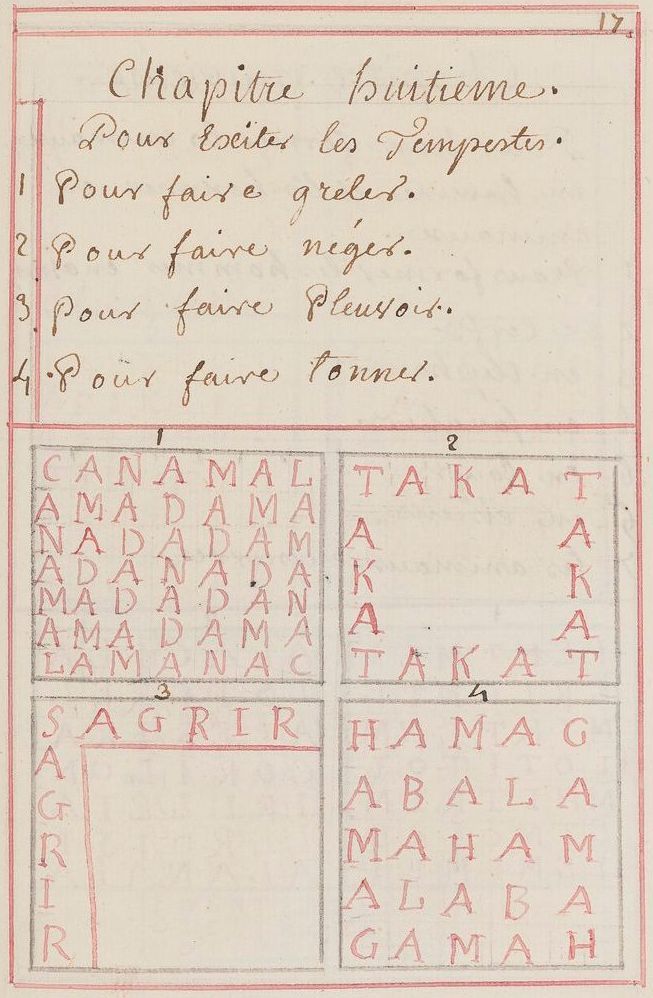 17.
Chapitre huitieme.
Pour Exciter les Tempestes.
1 Pour faire greler.
2 Pour faire néger.
3 Pour faire Pleuvoir.
4 Pour faire tonner.
1
CANAMAL
AMADAMA
NADADAM
ADANADA
MADADAN
AMADAMA
LAMANAC
2
TAKAT
A A
K K
A A
TAKAT
3
SAGRIR
A
G
R
I
R
4
HAMAG
ABALA
MAHAM
ALABA
GAMAH